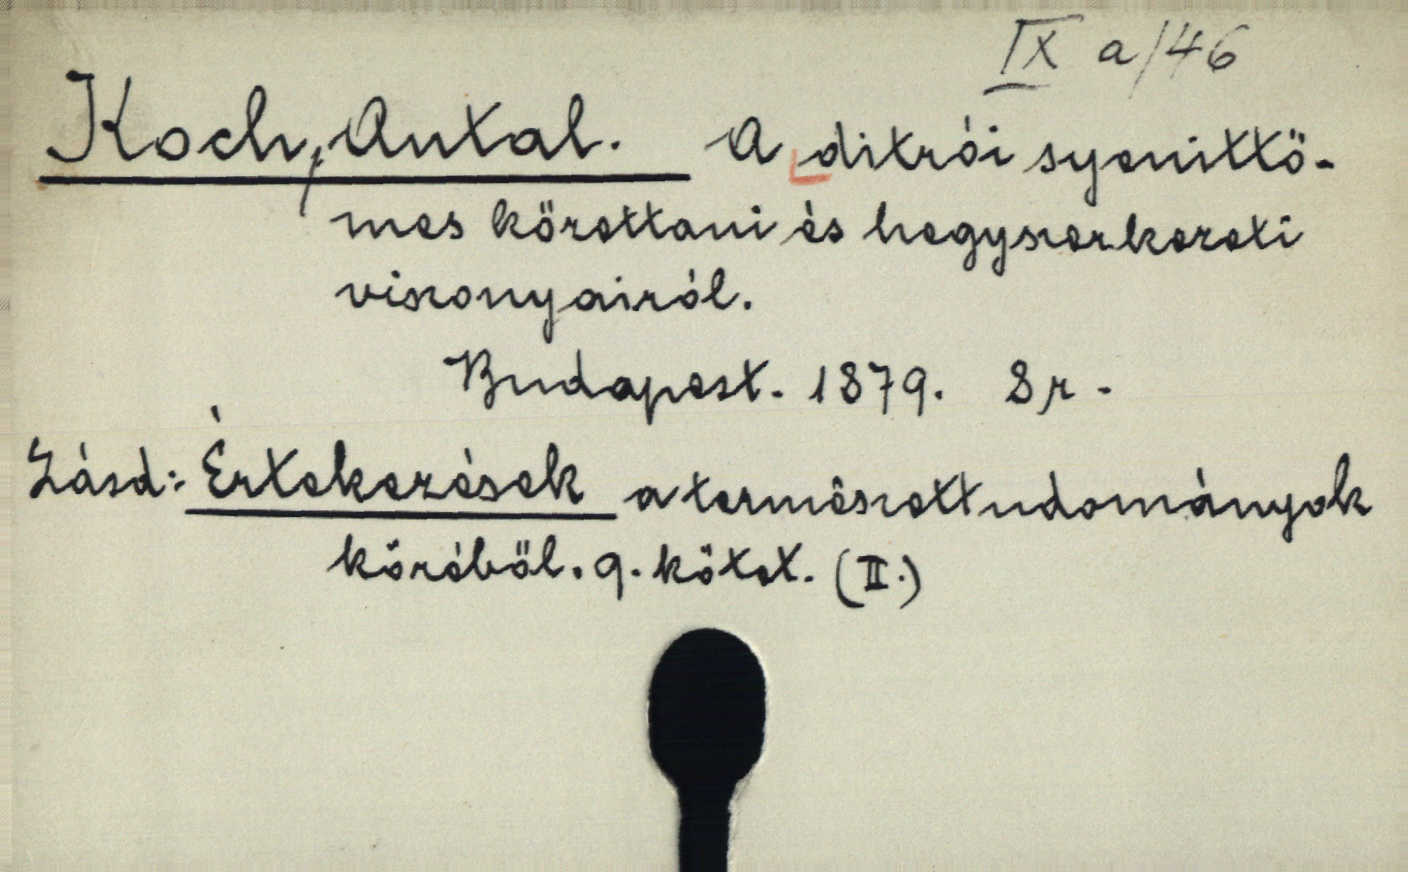 IX a/46
Koch, Antal. A ditrói syenittö-
mes kőzettani és hegyszerkezeti
viszonyairól.
Budapest. 1879. 8r.
Lásd: Értekezések a természettudományok
köréből. 9. kötet. (II.)